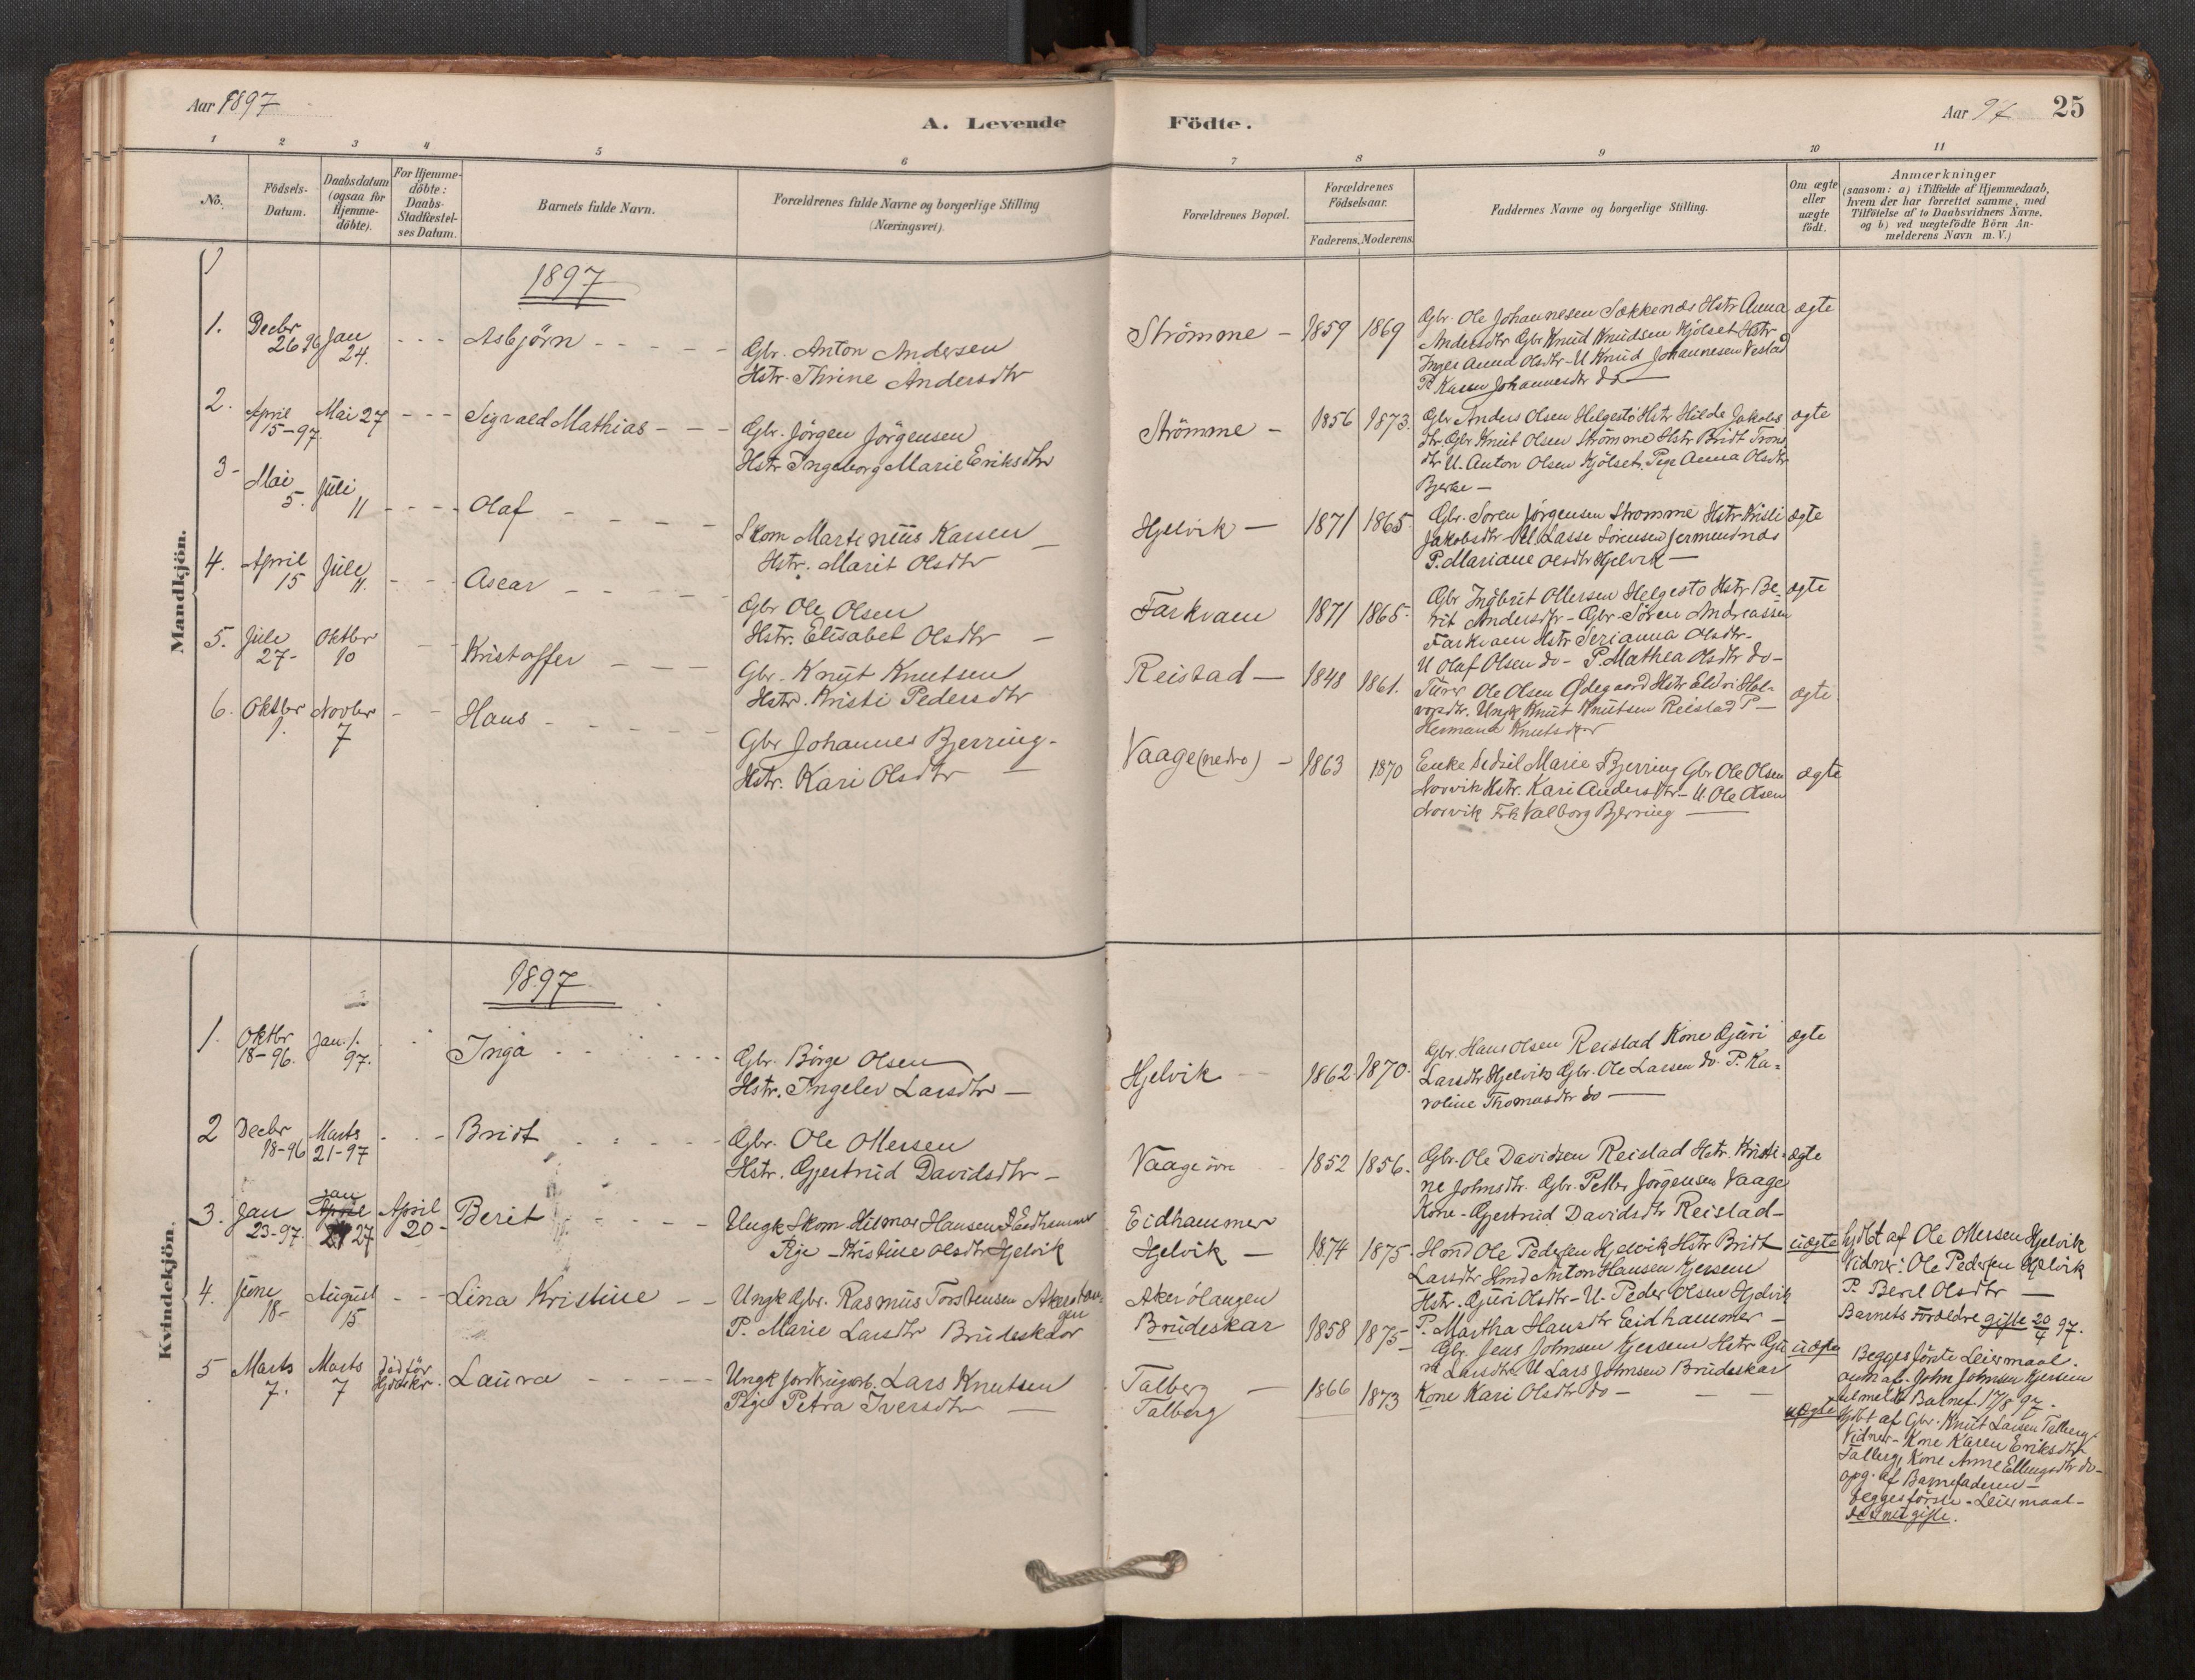 Aar 1897
A. Levende Födte.
Aar 97 25
1 2 3 4 5 6 7 8 9 10 11
No.
Födsels-
Datum.
Daabsdatum
(ogsaa for
Hjemme-
döbte).
For Hjemme-
döbte:
Daabs-
Stadfæstel-
ses Datum.
Barnets fulde Navn.
Forældrenes fulde Navne og borgerlige Stilling
(Næringsvei).
Forældrenes Bopæl.
Forældrenes
Födselsaar.
Faderens. Moderens.
Faddernes Navne og borgerlige Stilling.
Om ægte
eller
uægte
födt.
Anmærkninger
(saasom: a) i Tilfælde af Hjemmedaab,
hvem der har forrettet samme, med
Tilföielse af to Daabsvidners Navne,
og b) ved uægtefödte Börn An-
melderens Navn m. V.)
Mandkjön.
1897
1. Decbr
26 96 Jan
24. - - - Asbjörn - - - - -
Gbr. Anton Andersen
Hstr. Thrine Andersdtr
Strömme - 1859 1869
Gbr. Ole Johannesen Sækkenæs Hstr Anna
Andersdtr Gbr Knud Knudsen Hjölset Hstr
Inger Anna Olsdtr - U Knud Johannesen Vestad
P. Karen Johannesdtr do -
ægte
2. April
15-97. Mai 27 - - - Sigvald Mathias - - -
Gbr. Jörgen Jörgensen
Hstr Ingeborg Marie Eriksdtr
Strömme - 1856 1873.
Gbr Anders Olsen Helgestö Hstr Hilde Jakobs
dtr. Gbr Knut Olsen Strömme Hstr Bridt Trons
dtr U. Anton Olsen Kjölset. Pige Anna Olsdtr
Bjerke -
ægte
3 - Mai
5. Juli
11 - - - - Olaf - - - - -
Skom Martinius Karsen
Hstr. Marit Olsdtr
Hjelvik - 1871 1865.
Gbr. Soren Jörgensen Stromme Hstr Kristi
Jakobsdtr - U. Lasse Sörensen Jermundnæs
P. Mariane Olsdtr Hjelvik -
ægte
4. April
15 Jule
11. - - - Ascar - - - - -
Gbr Ole Olsen
Hstr. Elisabet Olsdtr -
Farkvam 1871 1865.
Gbr Ingbrit Ollersen Helgestö Hstr Be-
rit Andersdtr - Gbr Sören Andreassen
Farkvam Hstr Serianna Olsdtr -
U Olaf Olsen do - P. Mathea Olsdtr do -
ægte
5. Jule
27 - Oktbr
10 - - Kristoffer - - - -
Gbr - Knut Knutsen
Hstr. Kristi Pedersdtr
Reistad - 1848 1861.
Ole Olsen Ødegaard Hstr Eldri Hal-
vorsdtr. Ungk Knut Knutsen Reistad P -
Hermana Knutsdtr
ægte.
6. Oktbr
1. Novbr
7 - - Hans - - - - -
Gbr Johannes Bjerring -
Hstr. Kari Olsdtr -
Vaage (nedre) - 1863 1870
Enke Sidsil Marie Bjerring Gbr Ole Olsen
Norvik Hstr. Kari Andersdtr - U. Ole Olsen
Norvik Frk Valborg Bjerring -
ægte
Kvindekjön.
1897
1. Oktbr
18-96. Jan. 1.
97. Inga - - - -
Gbr. Börge Olsen
Hstr. Ingelev Larsdtr -
Hjelvik - 1862. 1870.
Gbr. Hans Olsen Reistad Kone Gjuri
Larsdtr Hjelvik Gbr. Ole Larsen do. P. Ka-
roline Thomasdtr do -
ægte
2 Decbr
18-96 Marts
21-97 - - - Bridt - - - - -
Gbr. Ole Ollersen
Hstr. Gjertrud Davidsdtr -
Vaage övre 1852 1856.
Gbr. Ole Davidsen Reistad Hstr. Kristi-
ne Johnsdtr. Gbr. Petter Jörgensen Vaage
Kone - Gjertrud Davidsdtr Reistad -
ægte
3. Jan
23-97. Jan
April
27 April
20 - Berit - - - -
Ungk Skom Hilmar Hansen Eidhammer
Pige - Kristine Olsdtr Hjelvik
Eidhammer
Hjelvik - 1874 1875.
Hmd Ole Pedersen Hjelvik Hstr Bridt
Larsdtr Hmd Anton Hansen Kjersem
Hstr. Gjuri Olsdtr - U. Peder Olsen Hjelvik
P. Martha Hansdtr Eidhammer -
uægte
hjdbt af Ole Ollersen Hjelvik
Vidner: Ole Pedersen Hjelvik
P. Beret Olsdtr -
Barnets Forældre gifte 20/4 97.
4. June
18 - August
15 - - - Lina Kristine - -
Ungk Gbr. Rasmus Torstensen Akerölan-
gen
P. Marie Larsdtr Brudeskar
Akerölangen
Brudeskar 1858 1875 -
Gbr. Jens Johnsen Kjersem Hstr Gju
ri Larsdtr U Lars Johnsen Brudeskar
Kone Kari Olsdtr do - - -
uægte
Begges förste Leiermaal.
anm af John Johnsen Kjersem
17/8 97.
5 Marts
7. Marts
7 Död för
Laura - - - - -
Ungk Lars Knutsen
Pige Petra Iversdtr -
Talberg -
Talberg 1866 1873
uægte
hjdbt af Gbr. Knut Larsen Talberg
Vidner - Kone Karen Eriksdtr
Talberg, Kone Anne Ellingsdtr do -
opg. af Barnefaderen -
begges förste - Leiermaal -
de ere nu gifte.